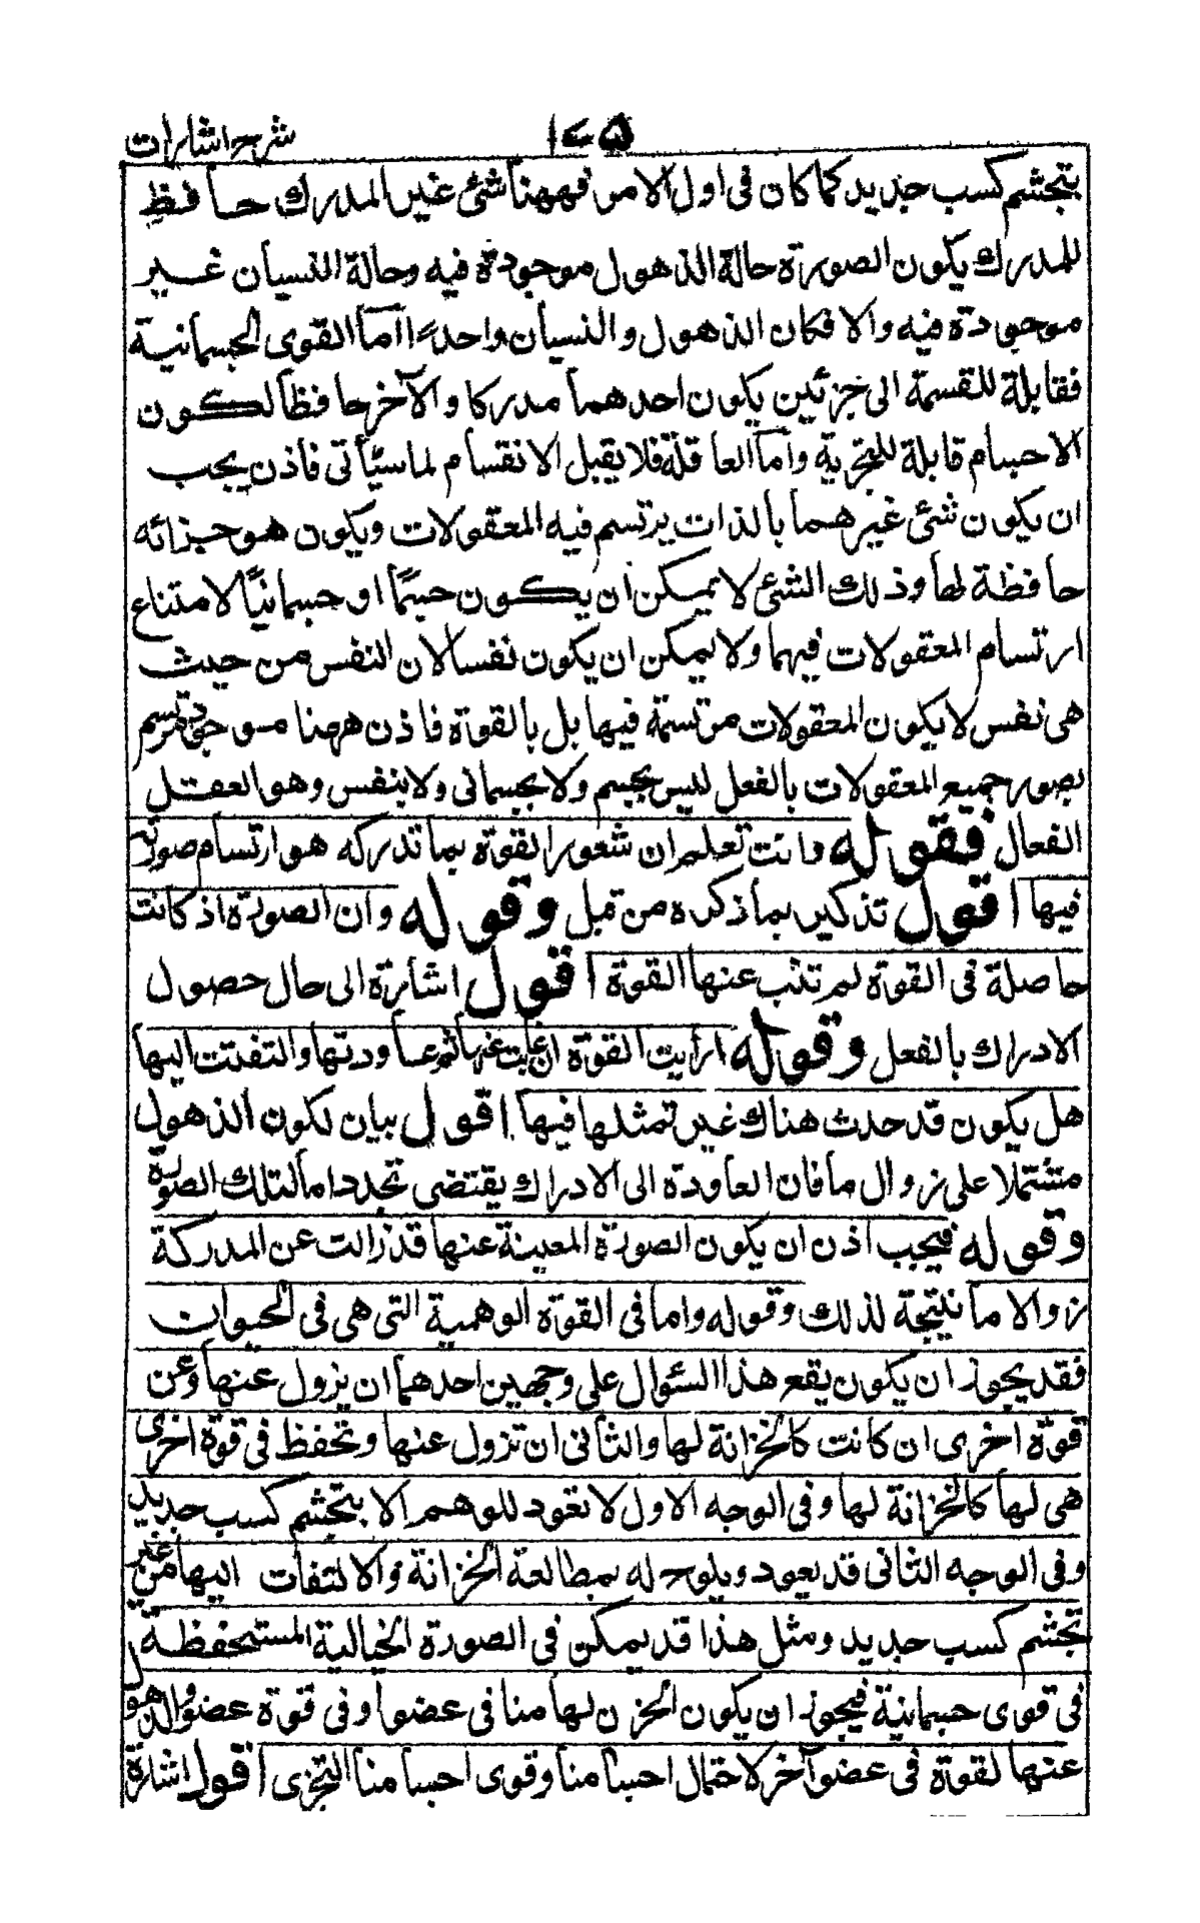 شرح اشارات
١٧٥
يتجشم كسب جديد كما كان فى اول الامر فههنا شئ غير المدرك حافظ
للمدرك يكون الصورة حالة الذهول موجودة فيه وحالة النسيان غير
موجودة فيه والا فكان الذهول والنسيان واحدا اما القوى الجسمانية
فقابلة للقسمة الى جزئين يكون احدهما مدركا والآخر حافظا لكون
الاجسام قابلة للتجزية واما العاقلة فلا يقبل الانقسام لما سيأتى فاذن يجب
ان يكون شئ غيرهما بالذات يرتسم فيه المعقولات ويكون هو خزانه
حافظة لها وذلك الشئ لا يمكن ان يكون جسمًا او جسمانيًا لامتناع
ارتسام المعقولات فيهما ولا يمكن ان يكون نفسا لان النفس من حيث
هى نفس لا يكون المعقولات مرتسمة فيها بل بالقوة فاذن ههنا موجود مرتسم
بصور جميع المعقولات بالفعل ليس بجسم ولا بجسمانى ولا بنفس وهو العقل
الفعال فقوله وانت تعلم ان شعور القوة بما تدركه هو ارتسام صورته
فيها اقول تذكير بما ذكره من قبل وقوله وان الصورة اذ كانت
حاصلة فى القوة لم تغب عنها القوة اقول اشارة الى حال حصول
الادراك بالفعل وقوله ارأيت القوة ان غابت عنها ثم عاودتها والتفتت اليها
هل يكون قد حدث هناك غير تمثلها فيها اقول بيان لكون الذهول
مشتملا على زوال ما فان العاودة الى الادراك يقتضى تجدد اما لتلك الصورة
وقوله فيجب اذن ان يكون الصورة المعينة عنها قد زالت عن المدركة
زوالا ما نتيجة لذلك وقوله واما فى القوة الوهمية التى هى فى الحيوان
فقد يجوز ان يكون يقع هذا السئوال على وجهين احدهما ان يزول عنها وعن
قوة اخرى ان كانت كالخزانة لها والثانى ان تزول عنها وتحفظ فى قوة اخرى
هى لها كالخزانة لها وفى الوجه الاول لا تعود للوهم الا بتجشم كسب جديد
وفى الوجه الثانى قد يعود ويلوح له بمطالعة الخزانة والالتفات اليها من غير
تجشم كسب جديد ومثل هذا قد يمكن فى الصورة الخيالية المستحفظة
فى قوى جسمانية فيجوز ان يكون الخزن لها منا فى عضو او فى قوة عضو والذهول
عنها لقوة فى عضو آخر لاحتمال اجسامنا وقوى اجسامنا التجزى اقول اشارة